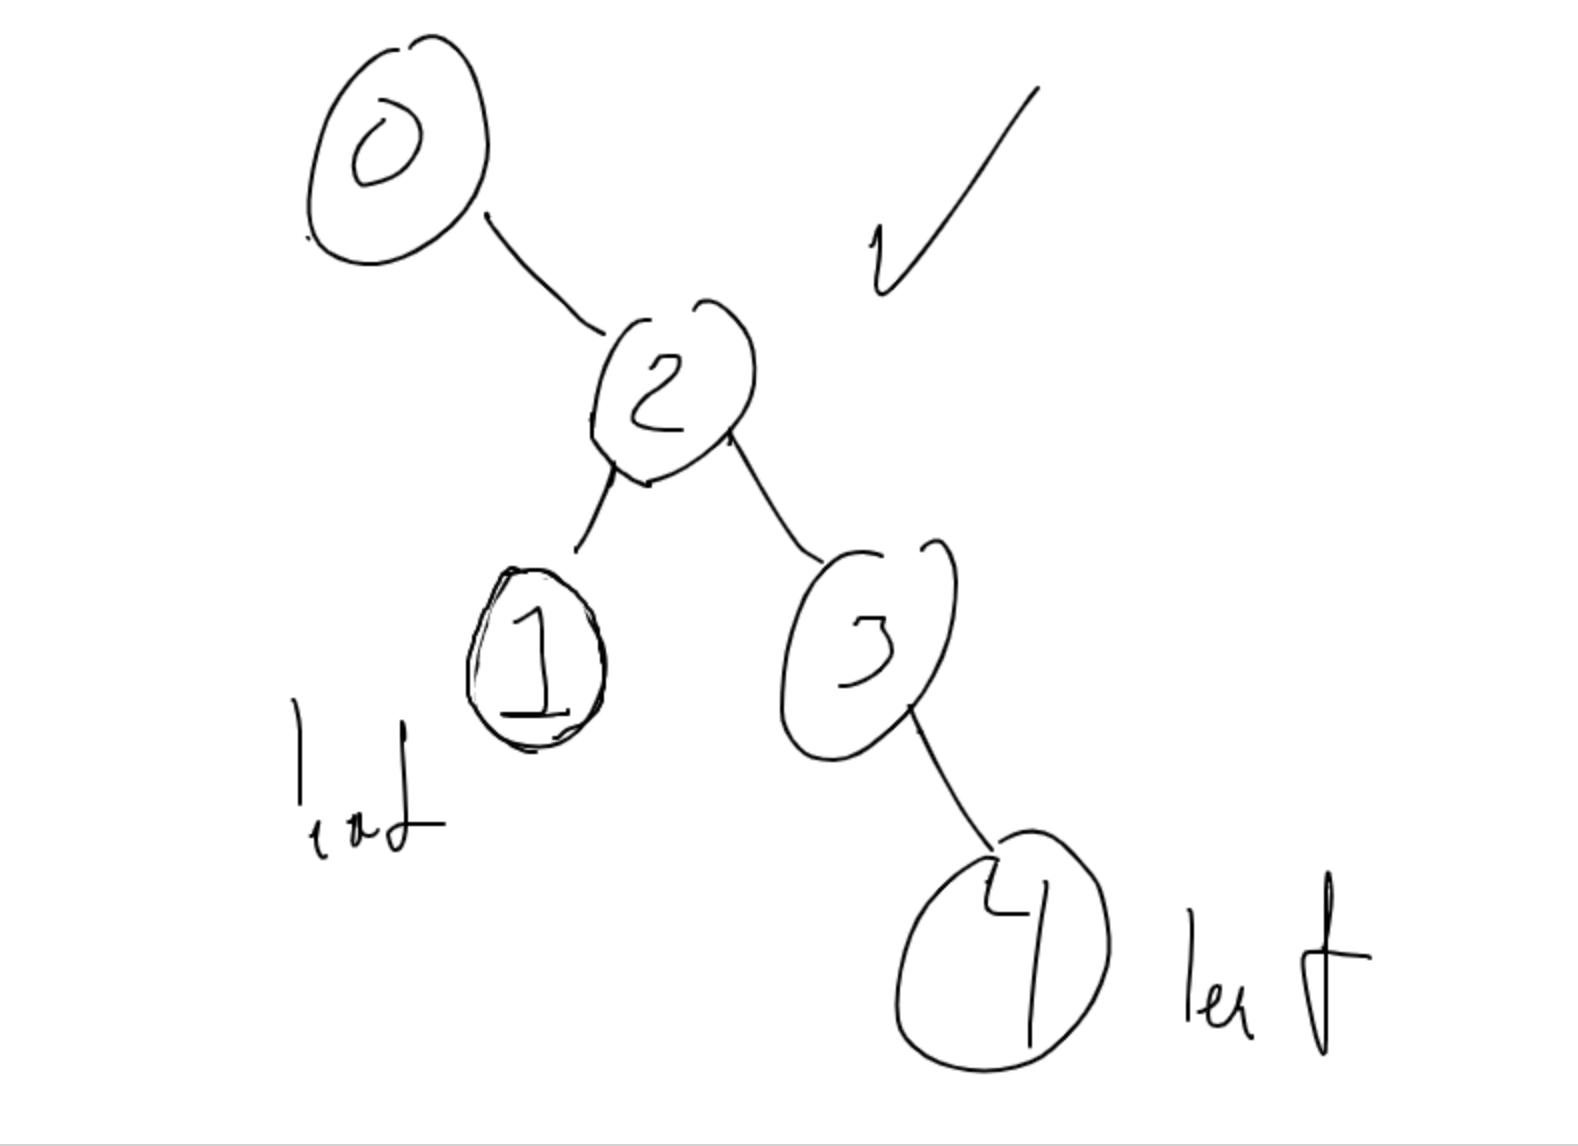 0
2
1
3
leaf
4
leaf